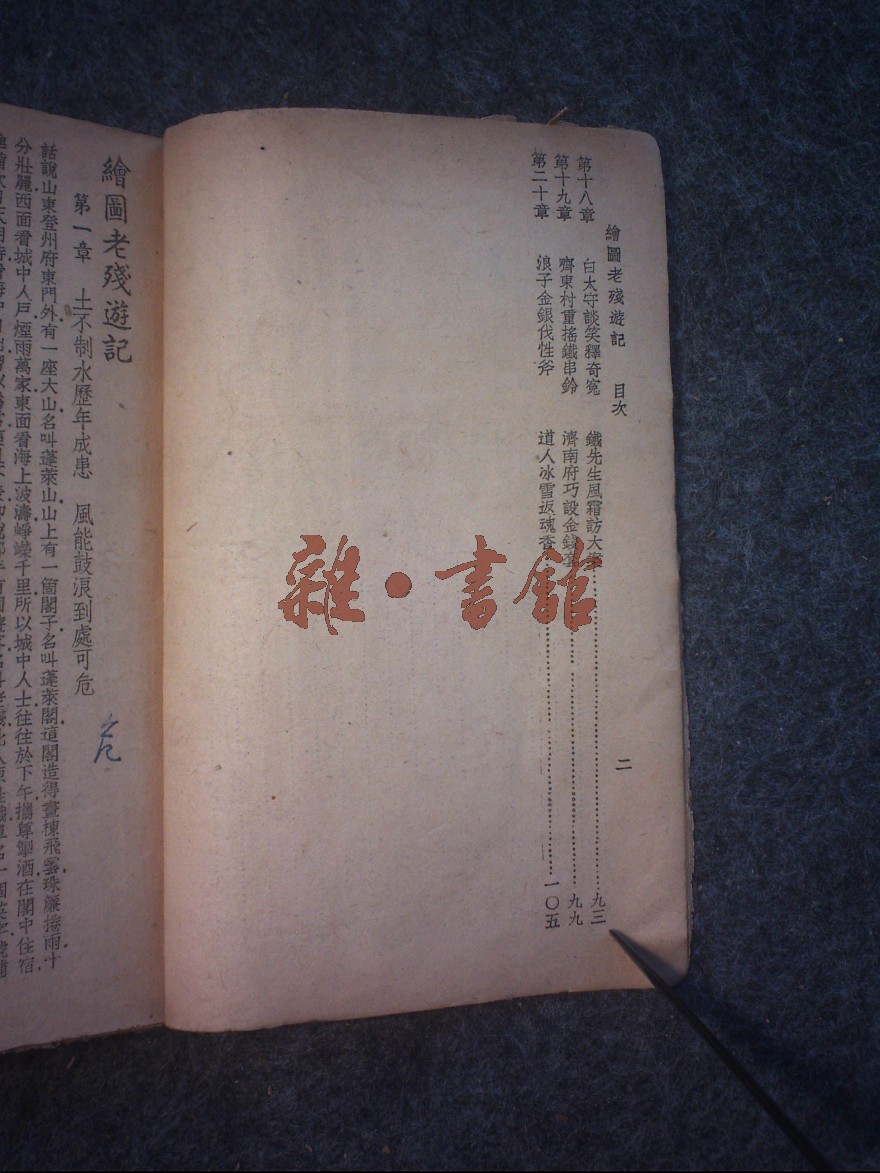 繪圖老殘遊記 目次 二
第十八章 白太守談笑釋奇冤 鐵先生風霜訪大案 九三
第十九章 齊東村重搖鐵串鈴 濟南府巧設金錢套 九九
第二十章 浪子金銀伐性斧 道人冰雪返魂香 一〇五
雜·書館
繪圖老殘遊記
第一章 土不制水歷年成患 風能鼓浪到處可危
危
話說山東登州府東門外有一座大山名叫蓬萊山山上有一箇閣子名叫蓬萊閣這閣造得畫棟飛雲珠簾捲雨十
分壯麗西面看城中人戶煙雨萬家東面看海上波濤崢嶸千里所以城中人士往往於下午攜尊挈酒在閣中住宿